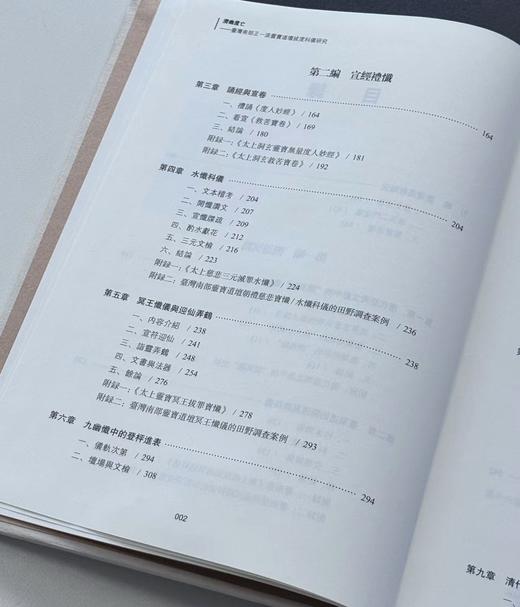 濟幽度亡
——臺灣南部正一派靈寶道壇拔度科儀研究
第二編 宣經禮懺
第三章 誦經與宣卷 164
一、禮誦《度人妙經》 / 164
二、看宣《救苦寶卷》 / 169
三、結論 / 180
附錄一：《太上洞玄靈寶無量度人妙經》 / 181
附錄二：《太上洞玄救苦寶卷》 / 192
第四章 水懺科儀 204
一、文本稽考 / 204
二、開懺讚文 / 207
三、宣懺牒疏 / 209
四、酌水獻花 / 212
五、三元文檢 / 216
六、結論 / 223
附錄一：《太上慈悲三元滅罪水懺》 / 224
附錄二：臺灣南部靈寶道壇朝禮慈悲寶懺/水懺科儀的田野調查案例 / 236
第五章 冥王懺儀與迎仙弄鶴 238
一、內容介紹 / 238
二、宣符迎仙 / 241
三、詣靈弄鶴 / 248
四、文書與法器 / 254
五、餘論 / 276
附錄一：《太上靈寶冥王拔罪寶懺》 / 278
附錄二：臺灣南部靈寶道壇冥王懺儀的田野調查案例 / 293
第六章 九幽懺中的登秤進表 294
一、儀軌次第 / 294
二、壇場與文檢 / 308
002
第九章 清代